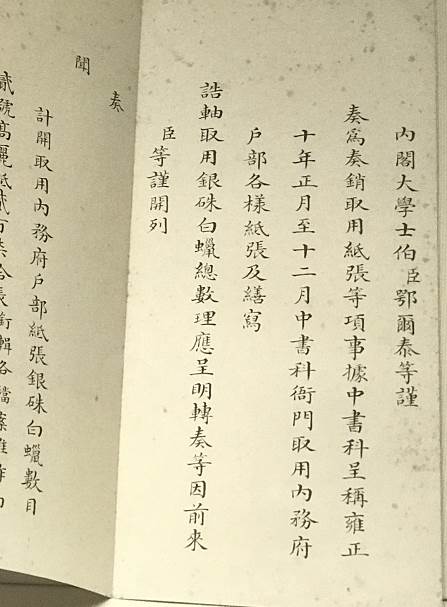 內閣大學士伯臣鄂爾泰等謹
奏爲奏銷取用紙張等項事據中書科呈稱雍正
十年正月至十二月中書科衙門取用內務府
戶部各樣紙張及繕寫
誥軸取用銀硃白蠟總數理應呈明轉奏等因前來
臣等謹開列
奏
聞
計開取用內務府戶部紙張銀硃白蠟數目
貳號高麗紙貳百柒拾張衝輯各檔案